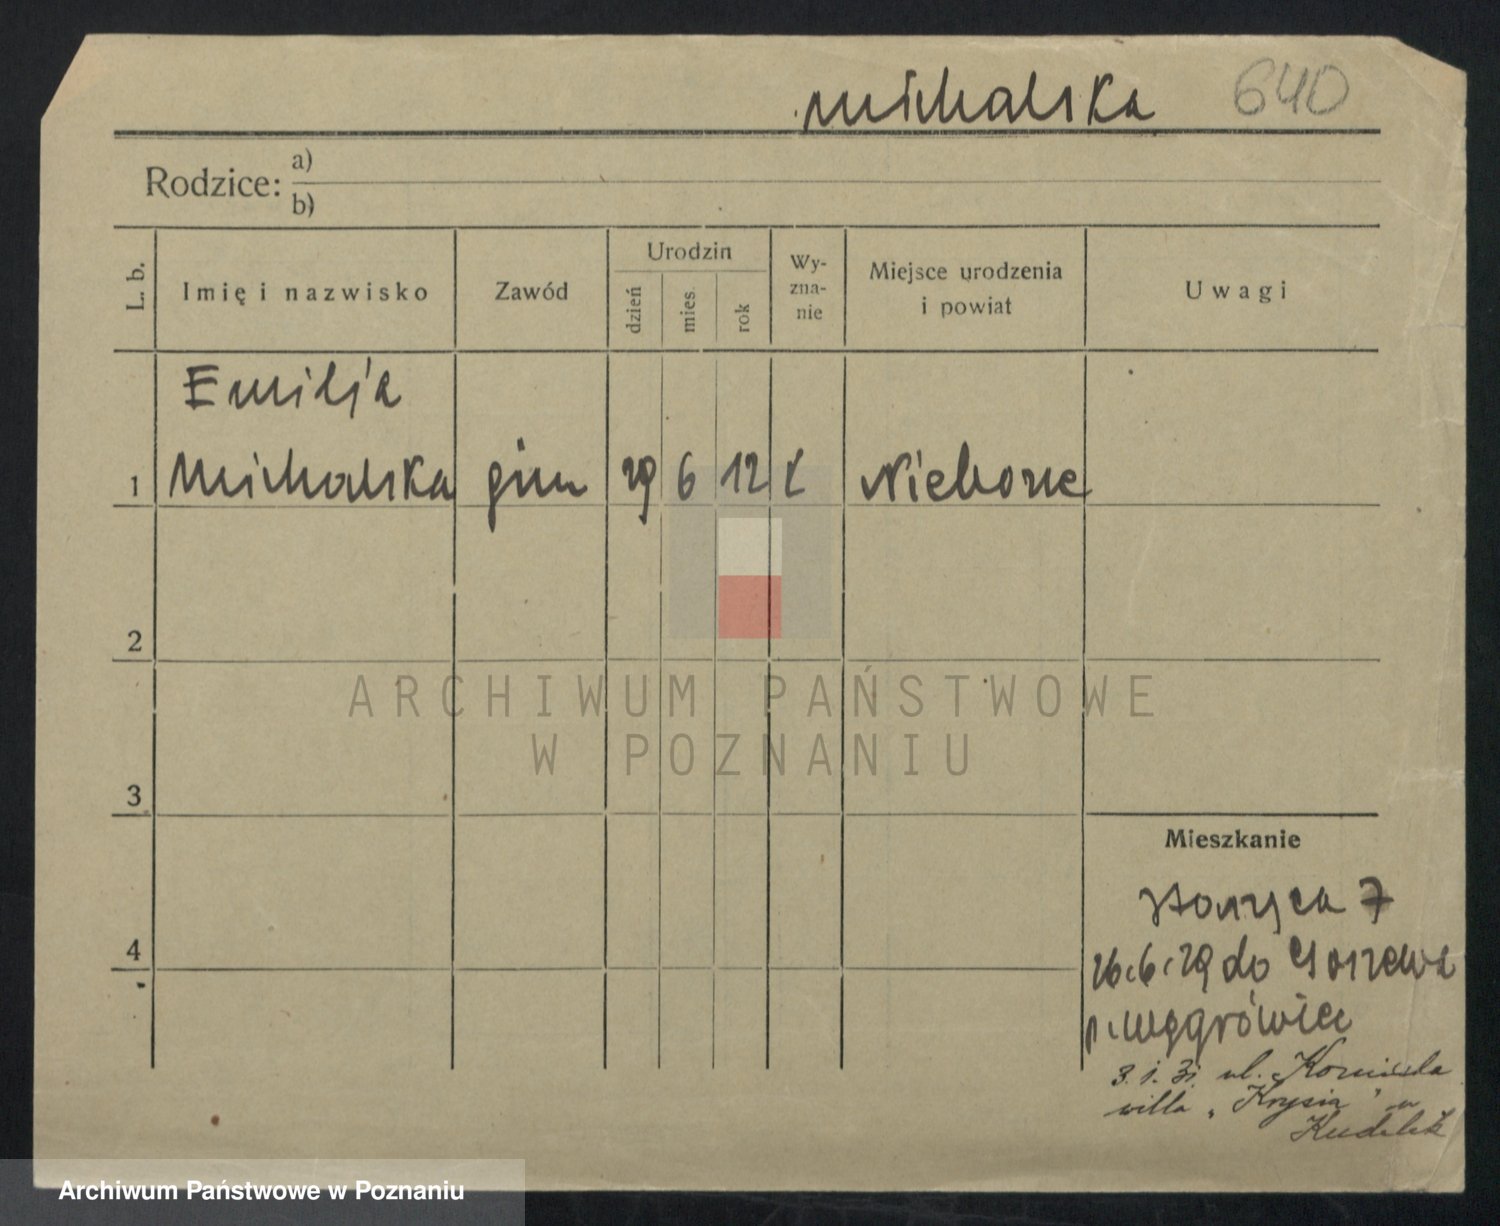 Michalska 640
Rodzice: a)
b)
L. b.
Imię i nazwisko
Zawód
Urodzin
dzień
mies.
rok
Wy-
zna-
nie
Miejsce urodzenia
i powiat
Uwagi
Emilja
1 Michalska gim 29 6 12
2
3
4
Mieszkanie
7
26.6.29 do
p. Wągrówiec
3. 1. 31. ul.
willa „Krysia"
ARCHIWUM PAŃSTWOWE
W POZNANIU
Archiwum Państwowe w Poznaniu